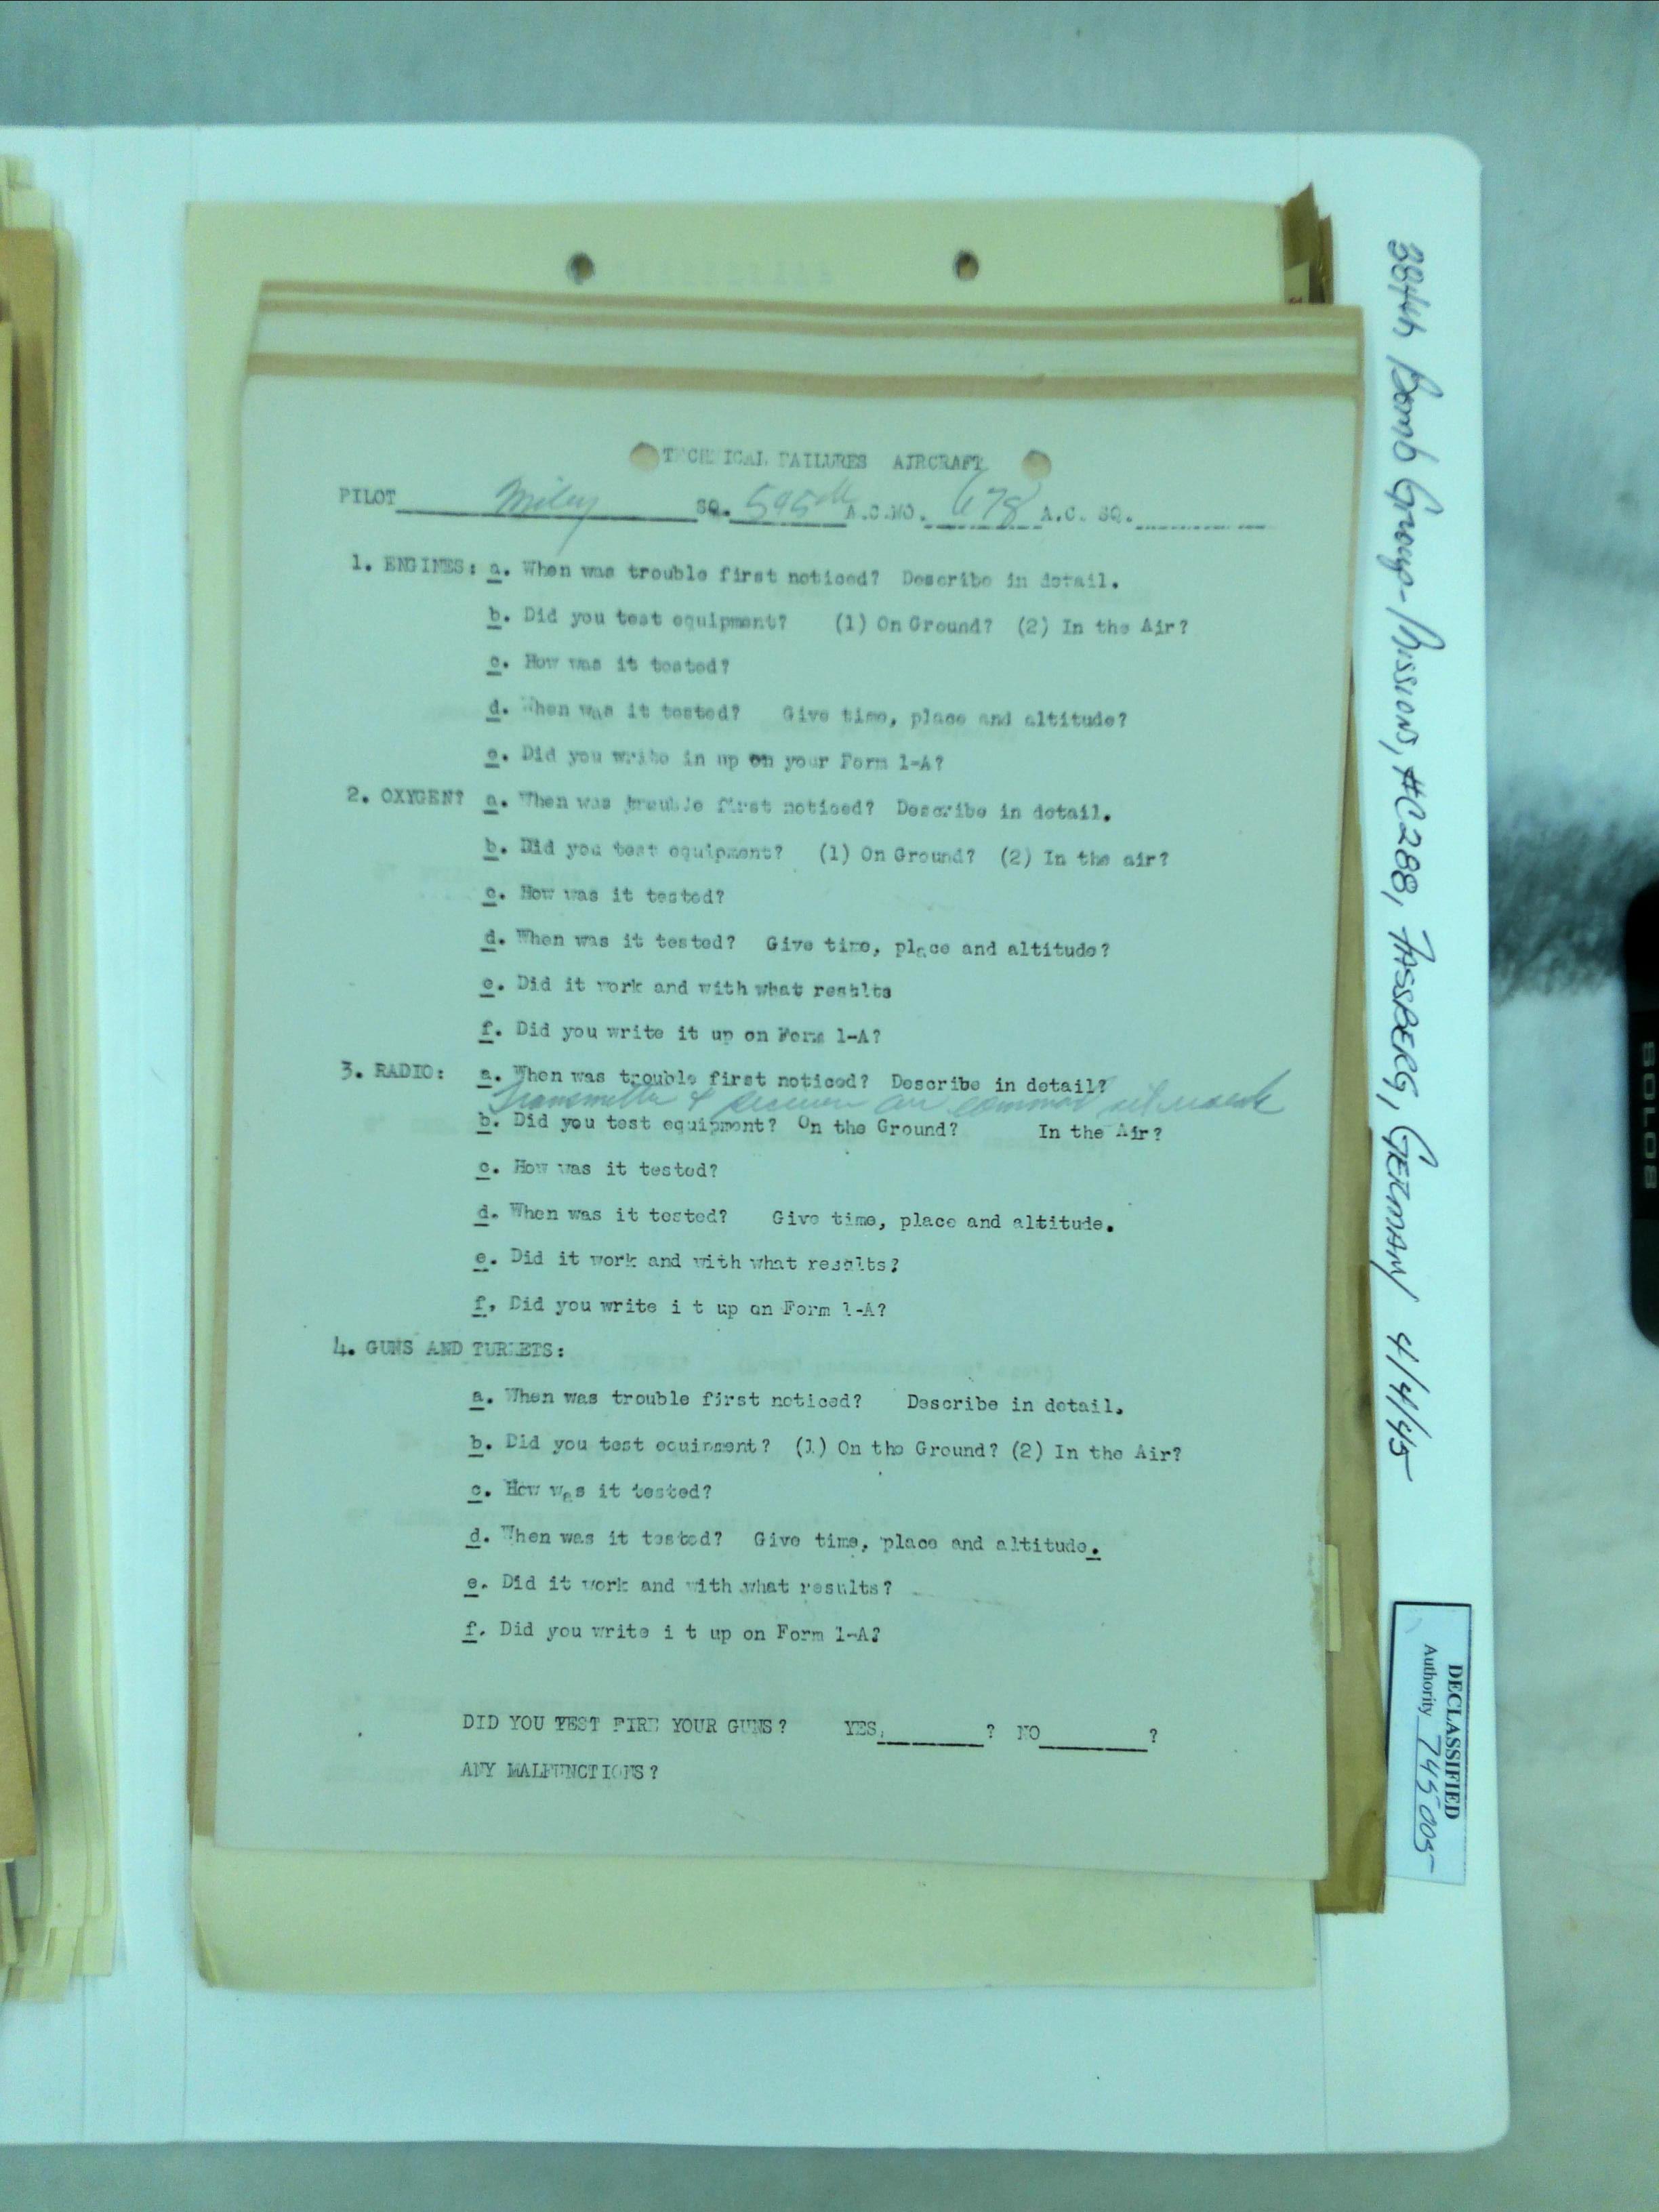 TECHNICAL FAILURES AIRCRAFT
PILOT Miley SQ. 545th A.C.NO. 678 A.C. SQ.
1. ENGINES: a. When was trouble first noticed? Describe in detail.
b. Did you test equipment? (1) On Ground? (2) In the Air?
c. How was it tested?
d. When was it tested? Give time, place and altitude?
e. Did you write in up on your Form 1-A?
2. OXYGEN? a. When was trouble first noticed? Describe in detail.
b. Did you test equipment? (1) On Ground? (2) In the air?
c. How was it tested?
d. When was it tested? Give time, place and altitude?
e. Did it work and with what results
f. Did you write it up on Form 1-A?
3. RADIO: a. When was trouble first noticed? Describe in detail?
Transmitter & receiver on command
b. Did you test equipment? On the Ground? In the Air?
c. How was it tested?
d. When was it tested? Give time, place and altitude.
e. Did it work and with what results?
f. Did you write i t up on Form 1-A?
4. GUNS AND TURRETS:
a. When was trouble first noticed? Describe in detail.
b. Did you test equipment? (1) On the Ground? (2) In the Air?
c. How was it tested?
d. When was it tested? Give time, place and altitude.
e. Did it work and with what results?
f. Did you write i t up on Form 1-A?
DID YOU TEST FIRE YOUR GUNS? YES. ? NO ?
ANY MALFUNCTIONS?
384th Bomb Group-Missions, #C288, FASSBERG, GERMANY 4/4/45
DECLASSIFIED
Authority 745005
SOLOS